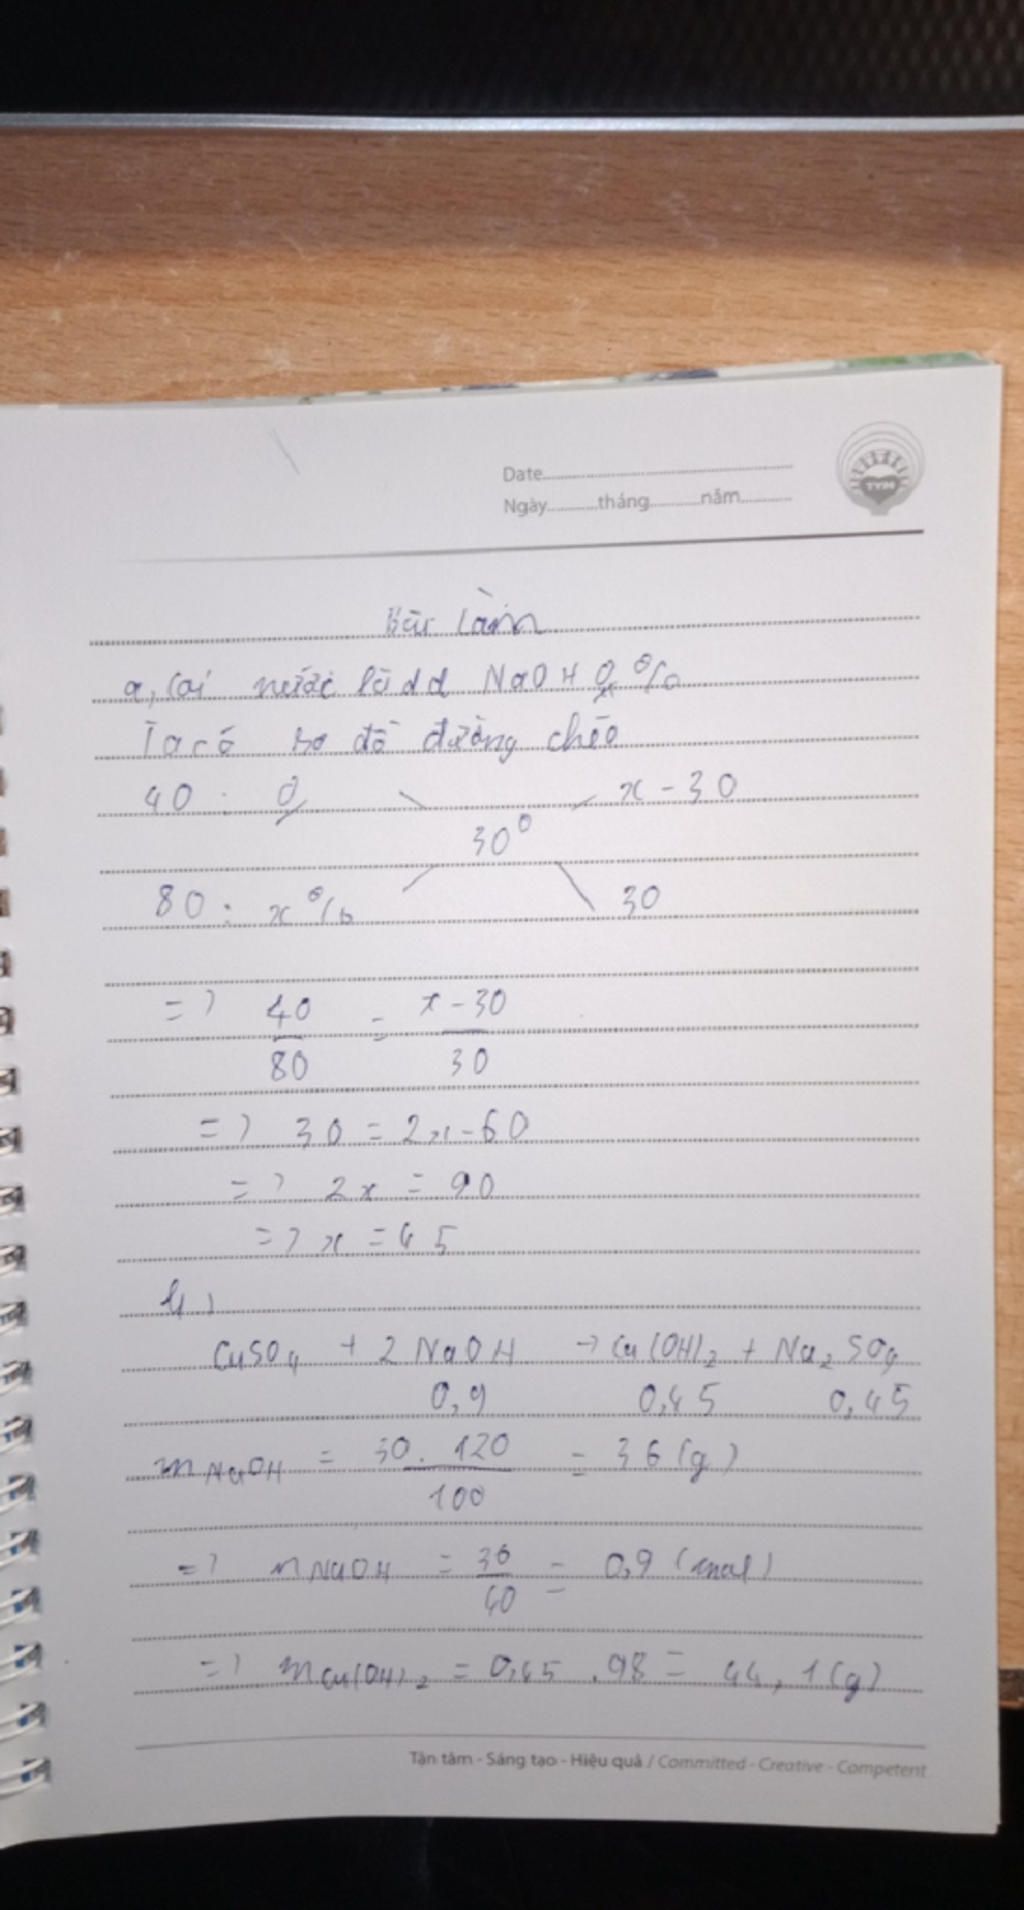 Date
Ngày tháng năm
TYM
Bài làm
a, Coi nước là dd NaOH 0%
Ta có sơ đồ đường chéo
40 : 0 x - 30
30°
80 : x% 30
=> 40/80 = x - 30/30
=> 30 = 2x - 60
=> 2x = 90
=> x = 45
b,
CuSO4 + 2 NaOH -> Cu(OH)2 + Na2SO4
0,9 0,45 0,45
mNaOH = 30 . 120/100 = 36 (g)
=> nNaOH = 36/40 = 0,9 (mol)
=> mCu(OH)2 = 0,45 . 98 = 44,1 (g)
Tận tâm - Sáng tạo - Hiệu quả / Committed - Creative - Competent